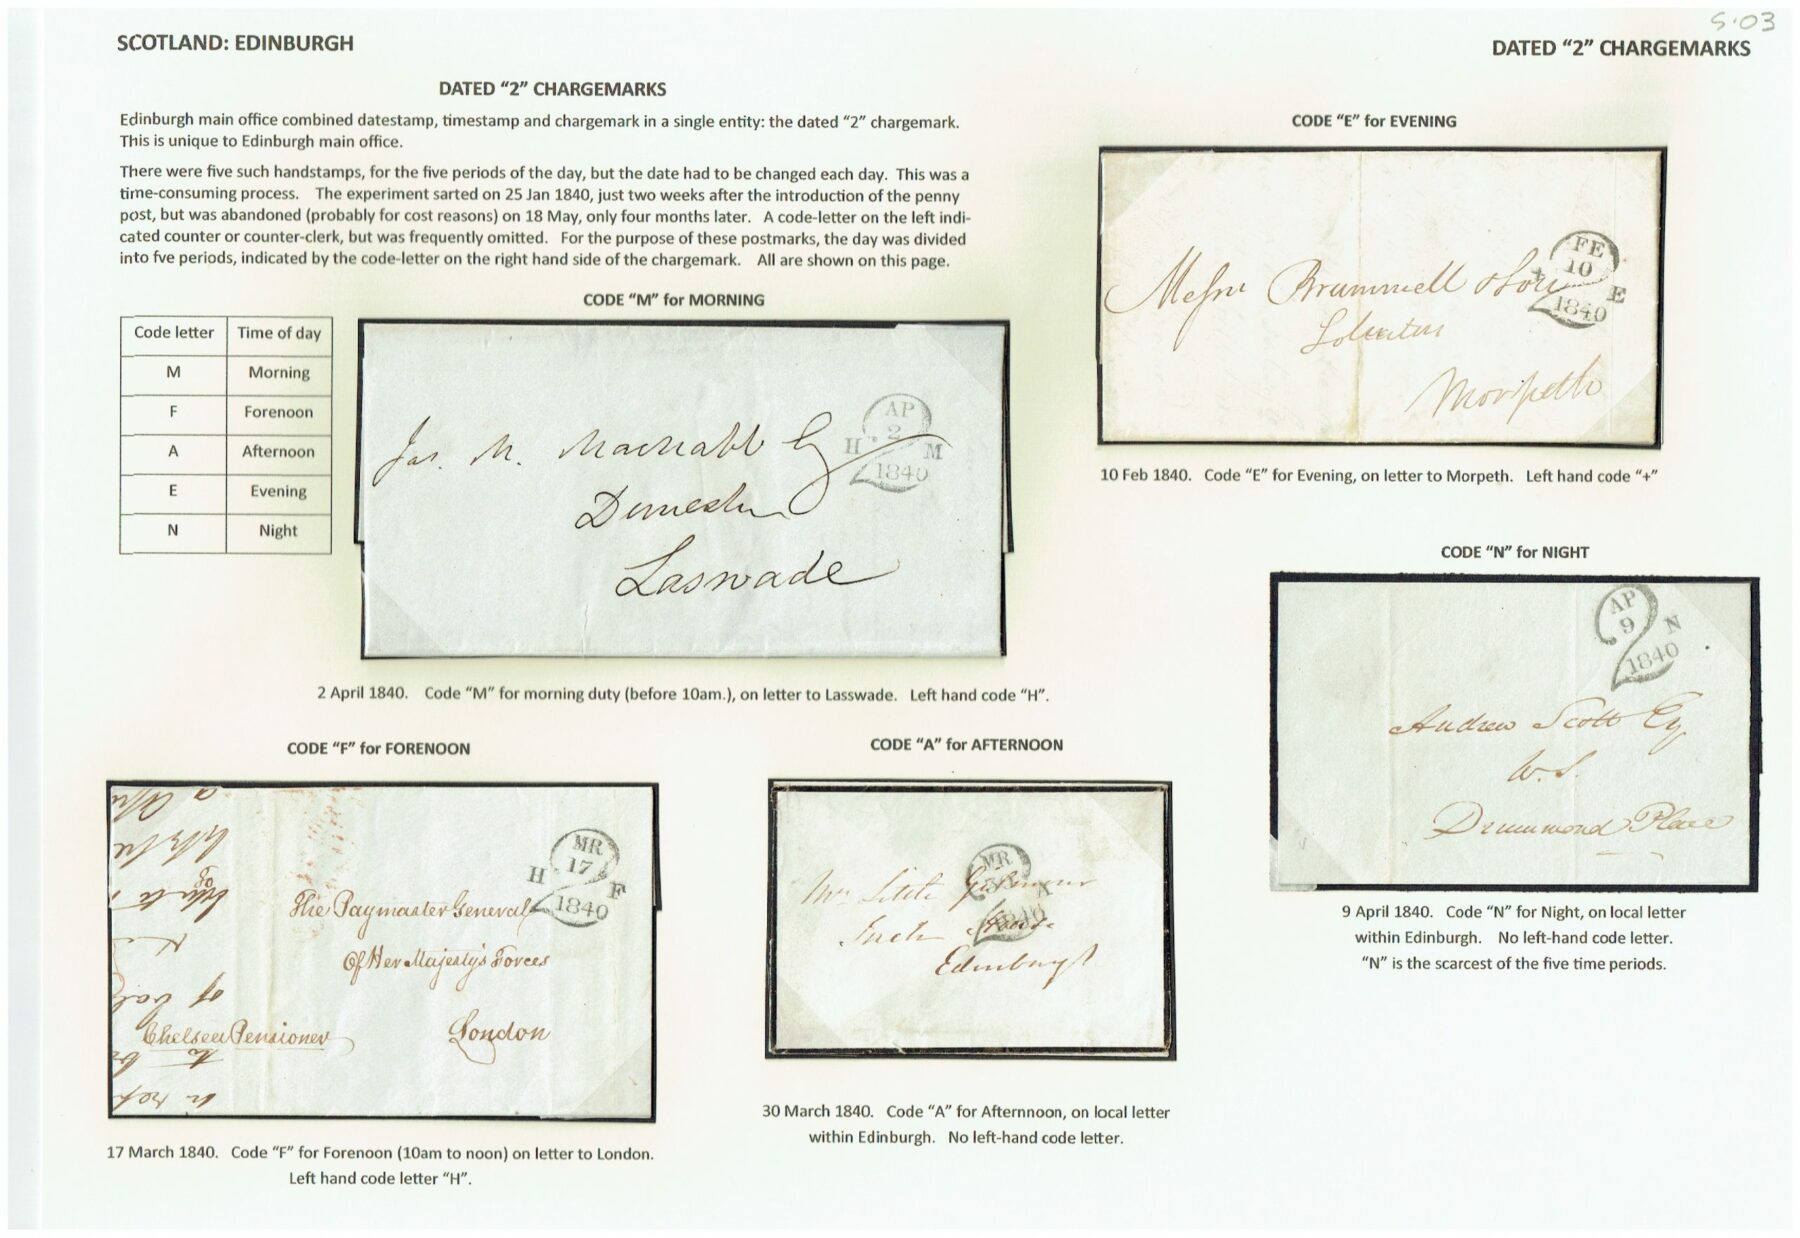 S.03
SCOTLAND: EDINBURGH
DATED “2” CHARGEMARKS
DATED “2” CHARGEMARKS
Edinburgh main office combined datestamp, timestamp and chargemark in a single entity: the dated “2” chargemark.
This is unique to Edinburgh main office.
There were five such handstamps, for the five periods of the day, but the date had to be changed each day. This was a
time-consuming process. The experiment sarted on 25 Jan 1840, just two weeks after the introduction of the penny
post, but was abandoned (probably for cost reasons) on 18 May, only four months later. A code-letter on the left indi-
cated counter or counter-clerk, but was frequently omitted. For the purpose of these postmarks, the day was divided
into fve periods, indicated by the code-letter on the right hand side of the chargemark. All are shown on this page.
Code letter Time of day
M Morning
F Forenoon
A Afternoon
E Evening
N Night
CODE “M” for MORNING
AP
2
H M
1840
Jas. M. Macnabb Esq
Lasswade
2 April 1840. Code “M” for morning duty (before 10am.), on letter to Lasswade. Left hand code “H”.
CODE “E” for EVENING
FE
10
+ E
1840
Messrs Brummell & Son
Solicitors
Morpeth
10 Feb 1840. Code “E” for Evening, on letter to Morpeth. Left hand code “+”
CODE “N” for NIGHT
AP
9
N
1840
Andrew Scott Esq
W.S.
Drummond Place
9 April 1840. Code “N” for Night, on local letter
within Edinburgh. No left-hand code letter.
“N” is the scarcest of the five time periods.
CODE “F” for FORENOON
MR
17
H F
1840
The Paymaster General
Of Her Majesty's Forces
Chelsea Pensioner London
17 March 1840. Code “F” for Forenoon (10am to noon) on letter to London.
Left hand code letter “H”.
CODE “A” for AFTERNOON
MR
A
1840
Edinburgh
30 March 1840. Code “A” for Afternnoon, on local letter
within Edinburgh. No left-hand code letter.